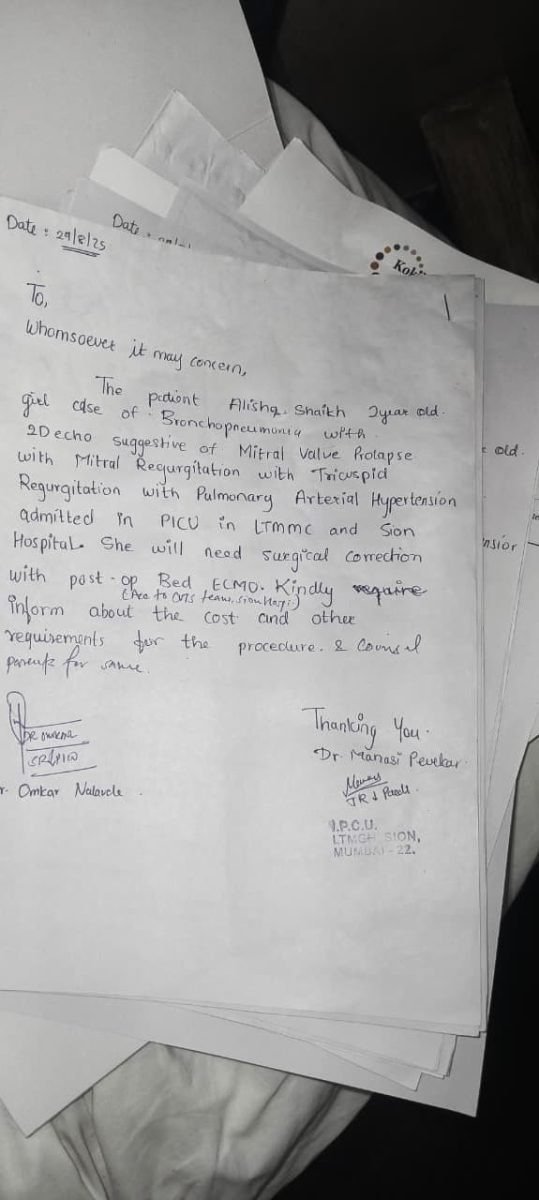 Date : 29/8/25
Date :
Kok
To,
Whomsoever it may concern,
The patient Alisha. Shaikh 2year old.
girl case of Bronchopneumonia with
2D echo suggestive of Mitral Valve Prolapse
with Mitral Regurgitation with Tricuspid
Regurgitation with Pulmonary Arterial Hypertension
admitted in PICU in LTMMC and Sion
Hospital. She will need surgical correction
with post-op Bed ECMO. Kindly require
(Acc to CVTS team, sion Hosp.)
inform about the cost and other
requirements for the procedure. & Counsel
parents for same.
old.
nsion
Thanking You.
Dr. Manasi Pevekar.
DR OMKAR
SR PICU
Omkar
I.P.C.U.
LTMGH SION,
MUMBAI-22.